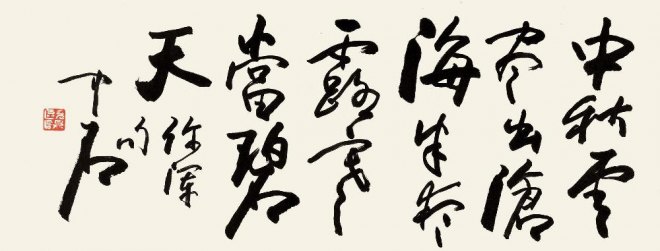 中秋雲
盡出滄
海半夜
露寒
當碧
天
許渾
句
中石